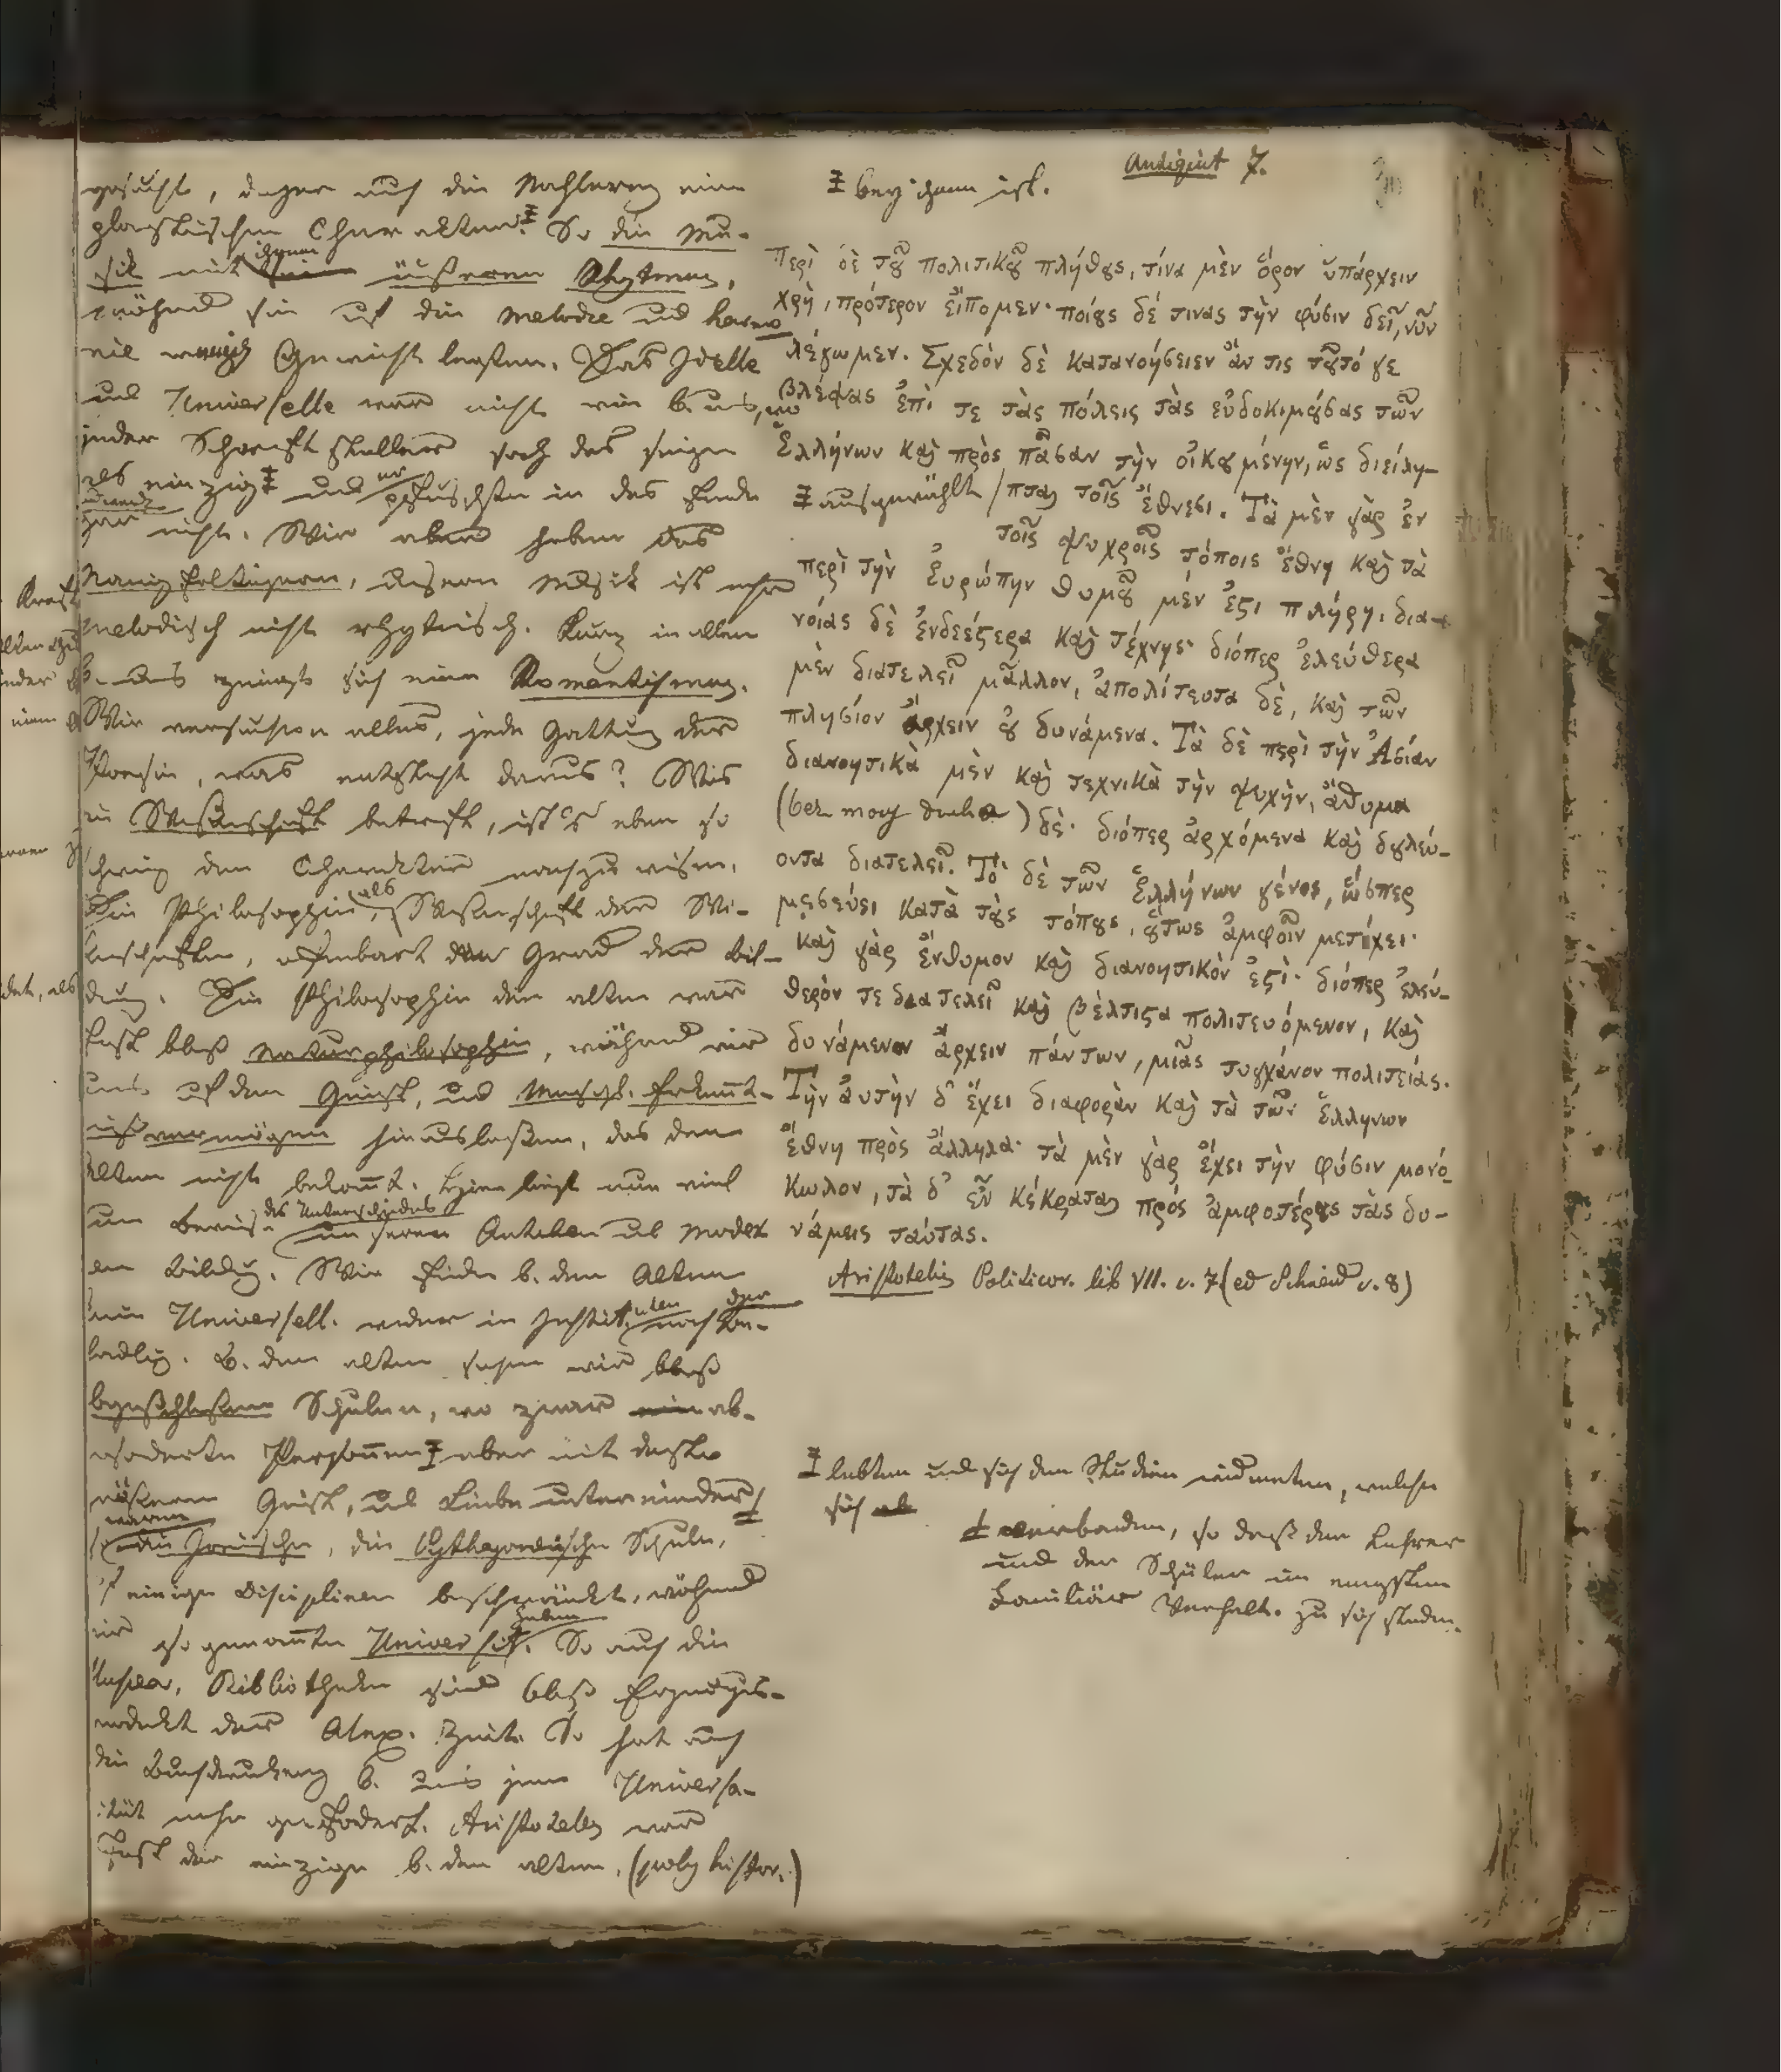 Antiquit 7.
gesucht, daher auch die Mahlerey eine
plastischen Character. So die Mu-
sik mit ihrem äußeren Rhytmus,
während sie auf die Melodie und harmo
nie wenig Gewicht leg̅ten. Das Idelle
und Universelle war nicht wie b. uns, wo
jeder Schriftsteller sich das seinige
als einzig und er
gar nicht. Wir aber haben das
Manigfaltigere, unsere Musik ist mehr
melodisch nicht rhytmisch. Kurz in allen
zeigt sich eine Romantismus.
Wir versuchen alles, jede Gattung der
Poesie, was entsteht daraus? Was
die Wißenschaft betrift, ist's eben so
schwierig den Character nachzuweisen.
Die Philosophie, als Wißenschaft der Wi-
ßenschaften, offenbart den Grad der Bil-
dung. Die Philosophie der alten war
fast bloß Naturphilosophie, während wir
uns auf den Geist, und Menschl. Erkennt-
nißvermögen hinauslaßen, das den
Alten nicht bekannt. Hierin liegt nun viel
zum Beweis des Unterschiedes unserer Antiken und Modern
en Bildung. Wir finden b. den Alten
kein Universell. weder in Instituten noch der
B. den alten sehen wir bloß
Schulen, wo zwar ab-
gesoderte Personen aber mit desto
größerem Geist, und Liebe untereinander
waren
so die Jonische, die Pythagoreische Schule,
auf einige Disciplinen beschränkt, während
wir so genannte Universit. haben So auch die
Museen, Bibliotheken sind bloß Erzeugus-
product der Alex. Zeit. So hat auch
die Buchdruckerey b. uns jene Universa-
lität mehr gefodert. Aristoteles war
fast der einzige b. den alten. (polyhistor.)
bey ihnen ist.
περὶ δὲ τοῦ πολιτικοῦ πλήθους, τίνα μὲν ὅρον ὑπάρχειν
χρὴ, πρότερον εἴπομεν· ποίους δέ τινας τὴν φύσιν δεῖ, νῦν
λέγωμεν. Σχεδὸν δὲ κατανοήσειεν ἄν τις τοῦτό γε
βλέψας ἐπί τε τὰς πόλεις τὰς εὐδοκιμούσας τῶν
Ἑλλήνων καὶ πρὸς πᾶσαν τὴν οἰκουμένην, ὡς διείλη-
ausgewählt / πται τοῖς ἔθνεσι. Τὰ μὲν γὰρ ἐν
τοῖς ψυχροῖς τόποις ἔθνη καὶ τὰ
περὶ τὴν Εὐρώπην θυμοῦ μέν ἐστι πλήρη, δια-
νοίας δὲ ἐνδεέστερα καὶ τέχνης· διόπερ ἐλεύθερα
μὲν διατελεῖ μᾶλλον, ἀπολίτευτα δὲ, καὶ τῶν
πλησίον ἄρχειν οὐ δυνάμενα. Τὰ δὲ περὶ τὴν Ἀσίαν
διανοητικὰ μὲν καὶ τεχνικὰ τὴν ψυχὴν, ἄθυμα
δὲ· διόπερ ἀρχόμενα καὶ δουλεύ-
οντα διατελεῖ. Τὸ δὲ τῶν Ἑλλήνων γένος, ὥσπερ
μεσεύει κατὰ τοὺς τόπους, οὕτως ἀμφοῖν μετέχει·
καὶ γὰρ ἔνθυμον καὶ διανοητικόν ἐστι· διόπερ ἐλεύ-
θερόν τε διατελεῖ καὶ βέλτιστα πολιτευόμενον, καὶ
δυνάμενον ἄρχειν πάντων, μιᾶς τυγχάνον πολιτείας.
Τὴν αὐτὴν δ' ἔχει διαφορὰν καὶ τὰ τῶν Ἑλλήνων
ἔθνη πρὸς ἄλληλα· τὰ μὲν γὰρ ἔχει τὴν φύσιν μονό-
κωλον, τὰ δ' εὖ κέκραται πρὸς ἀμφοτέρους τὰς δυ-
νάμεις ταύτας.
Aristotelis Politicor. lib VII. c. 7 (ed Schneid c. 8)
lebten und sich den Studien widmeten, welche
sich
verbanden, so daß der Lehrer
und der Schüler im engsten
Familiär Verhält. zu sich standen.